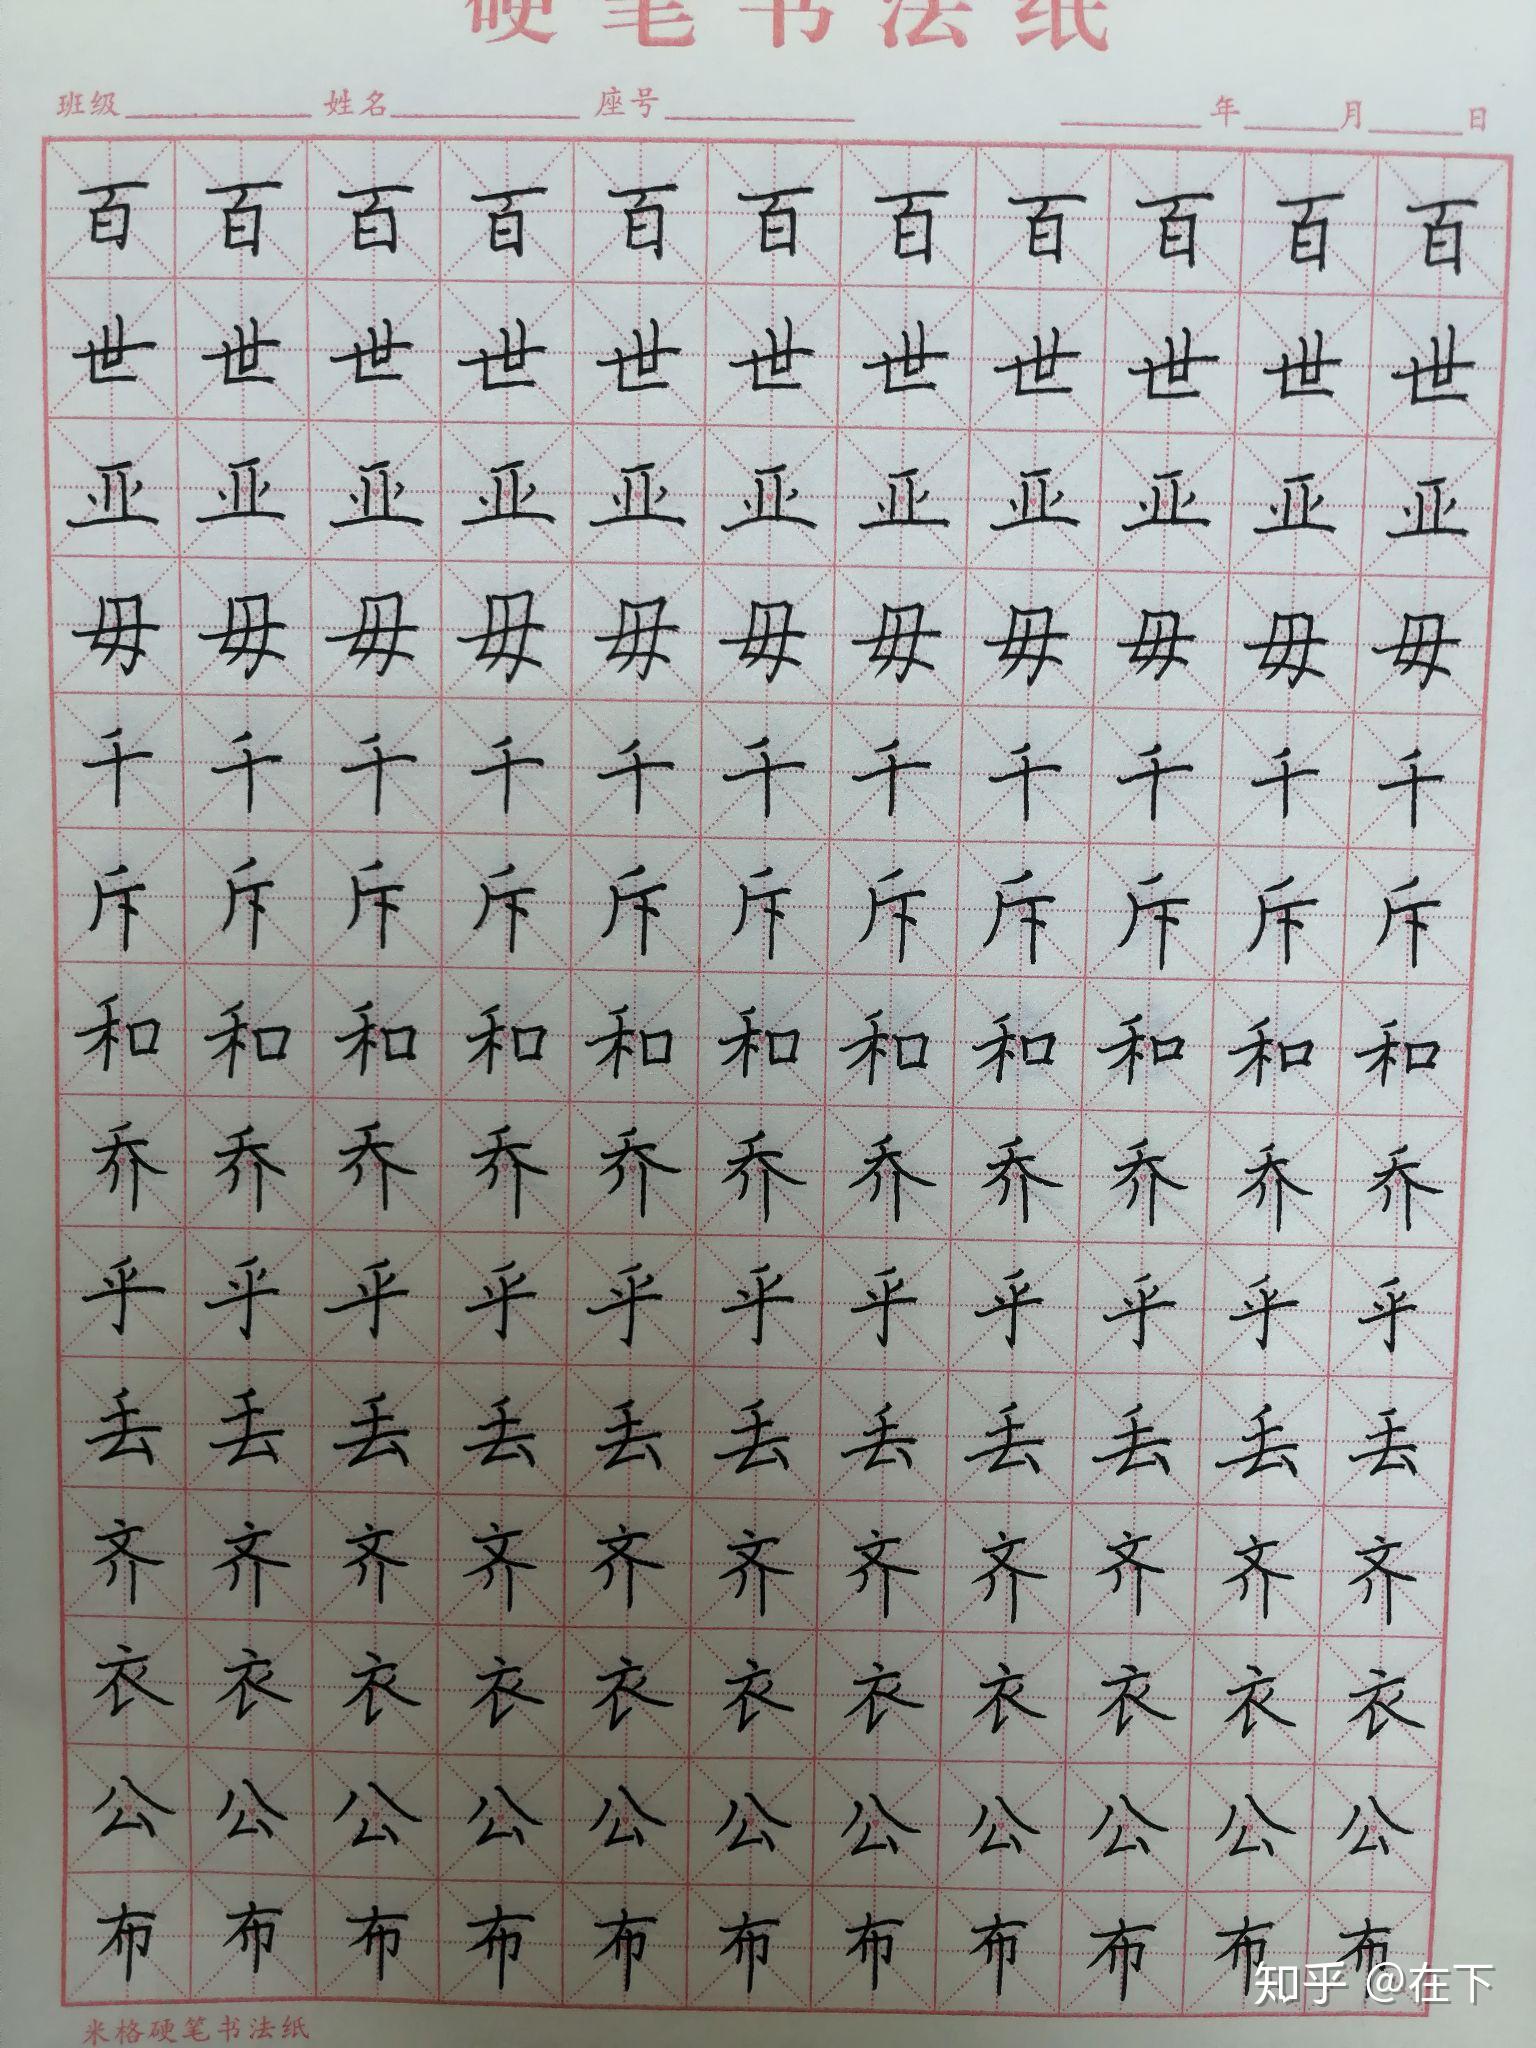 硬笔书法纸
班级 姓名 座号 年 月 日
百百百百百百百百百百百
世世世世世世世世世世世
亚亚亚亚亚亚亚亚亚亚亚
毋毋毋毋毋毋毋毋毋毋毋
千千千千千千千千千千千
斥斥斥斥斥斥斥斥斥斥斥
和和和和和和和和和和和
乔乔乔乔乔乔乔乔乔乔乔
乎乎乎乎乎乎乎乎乎乎乎
丢丢丢丢丢丢丢丢丢丢丢
齐齐齐齐齐齐齐齐齐齐齐
衣衣衣衣衣衣衣衣衣衣衣
公公公公公公公公公公公
布布布布布布布布布布布
知乎 @在下
米格硬笔书法纸